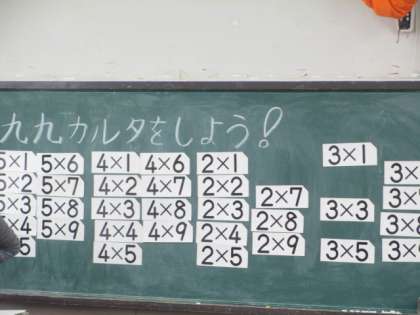 九九カルタをしよう!
5×1 5×6 4×1 4×6 2×1 3×1
5×2 5×7 4×2 4×7 2×2 2×7
5×3 5×8 4×3 4×8 2×3 2×8 3×3
5×4 5×9 4×4 4×9 2×4 2×9
4×5 2×5 3×5